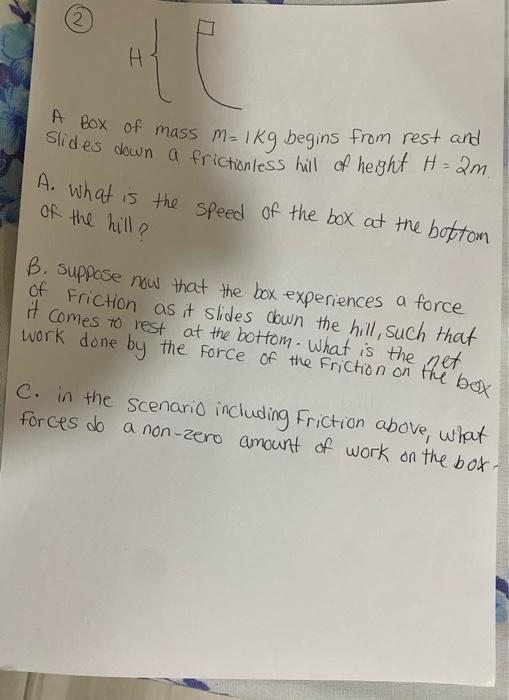 2
H
A Box of mass M=1Kg begins from rest and
Slides down a frictionless hill of height H=2m.
A. What is the speed of the box at the bottom
of the hill?
B. Suppose now that the box experiences a force
of Friction as it slides down the hill, such that
it comes to rest at the bottom. What is the net
work done by the Force of the Friction on the box
C. in the scenario including Friction above, what
forces do a non-zero amount of work on the box.